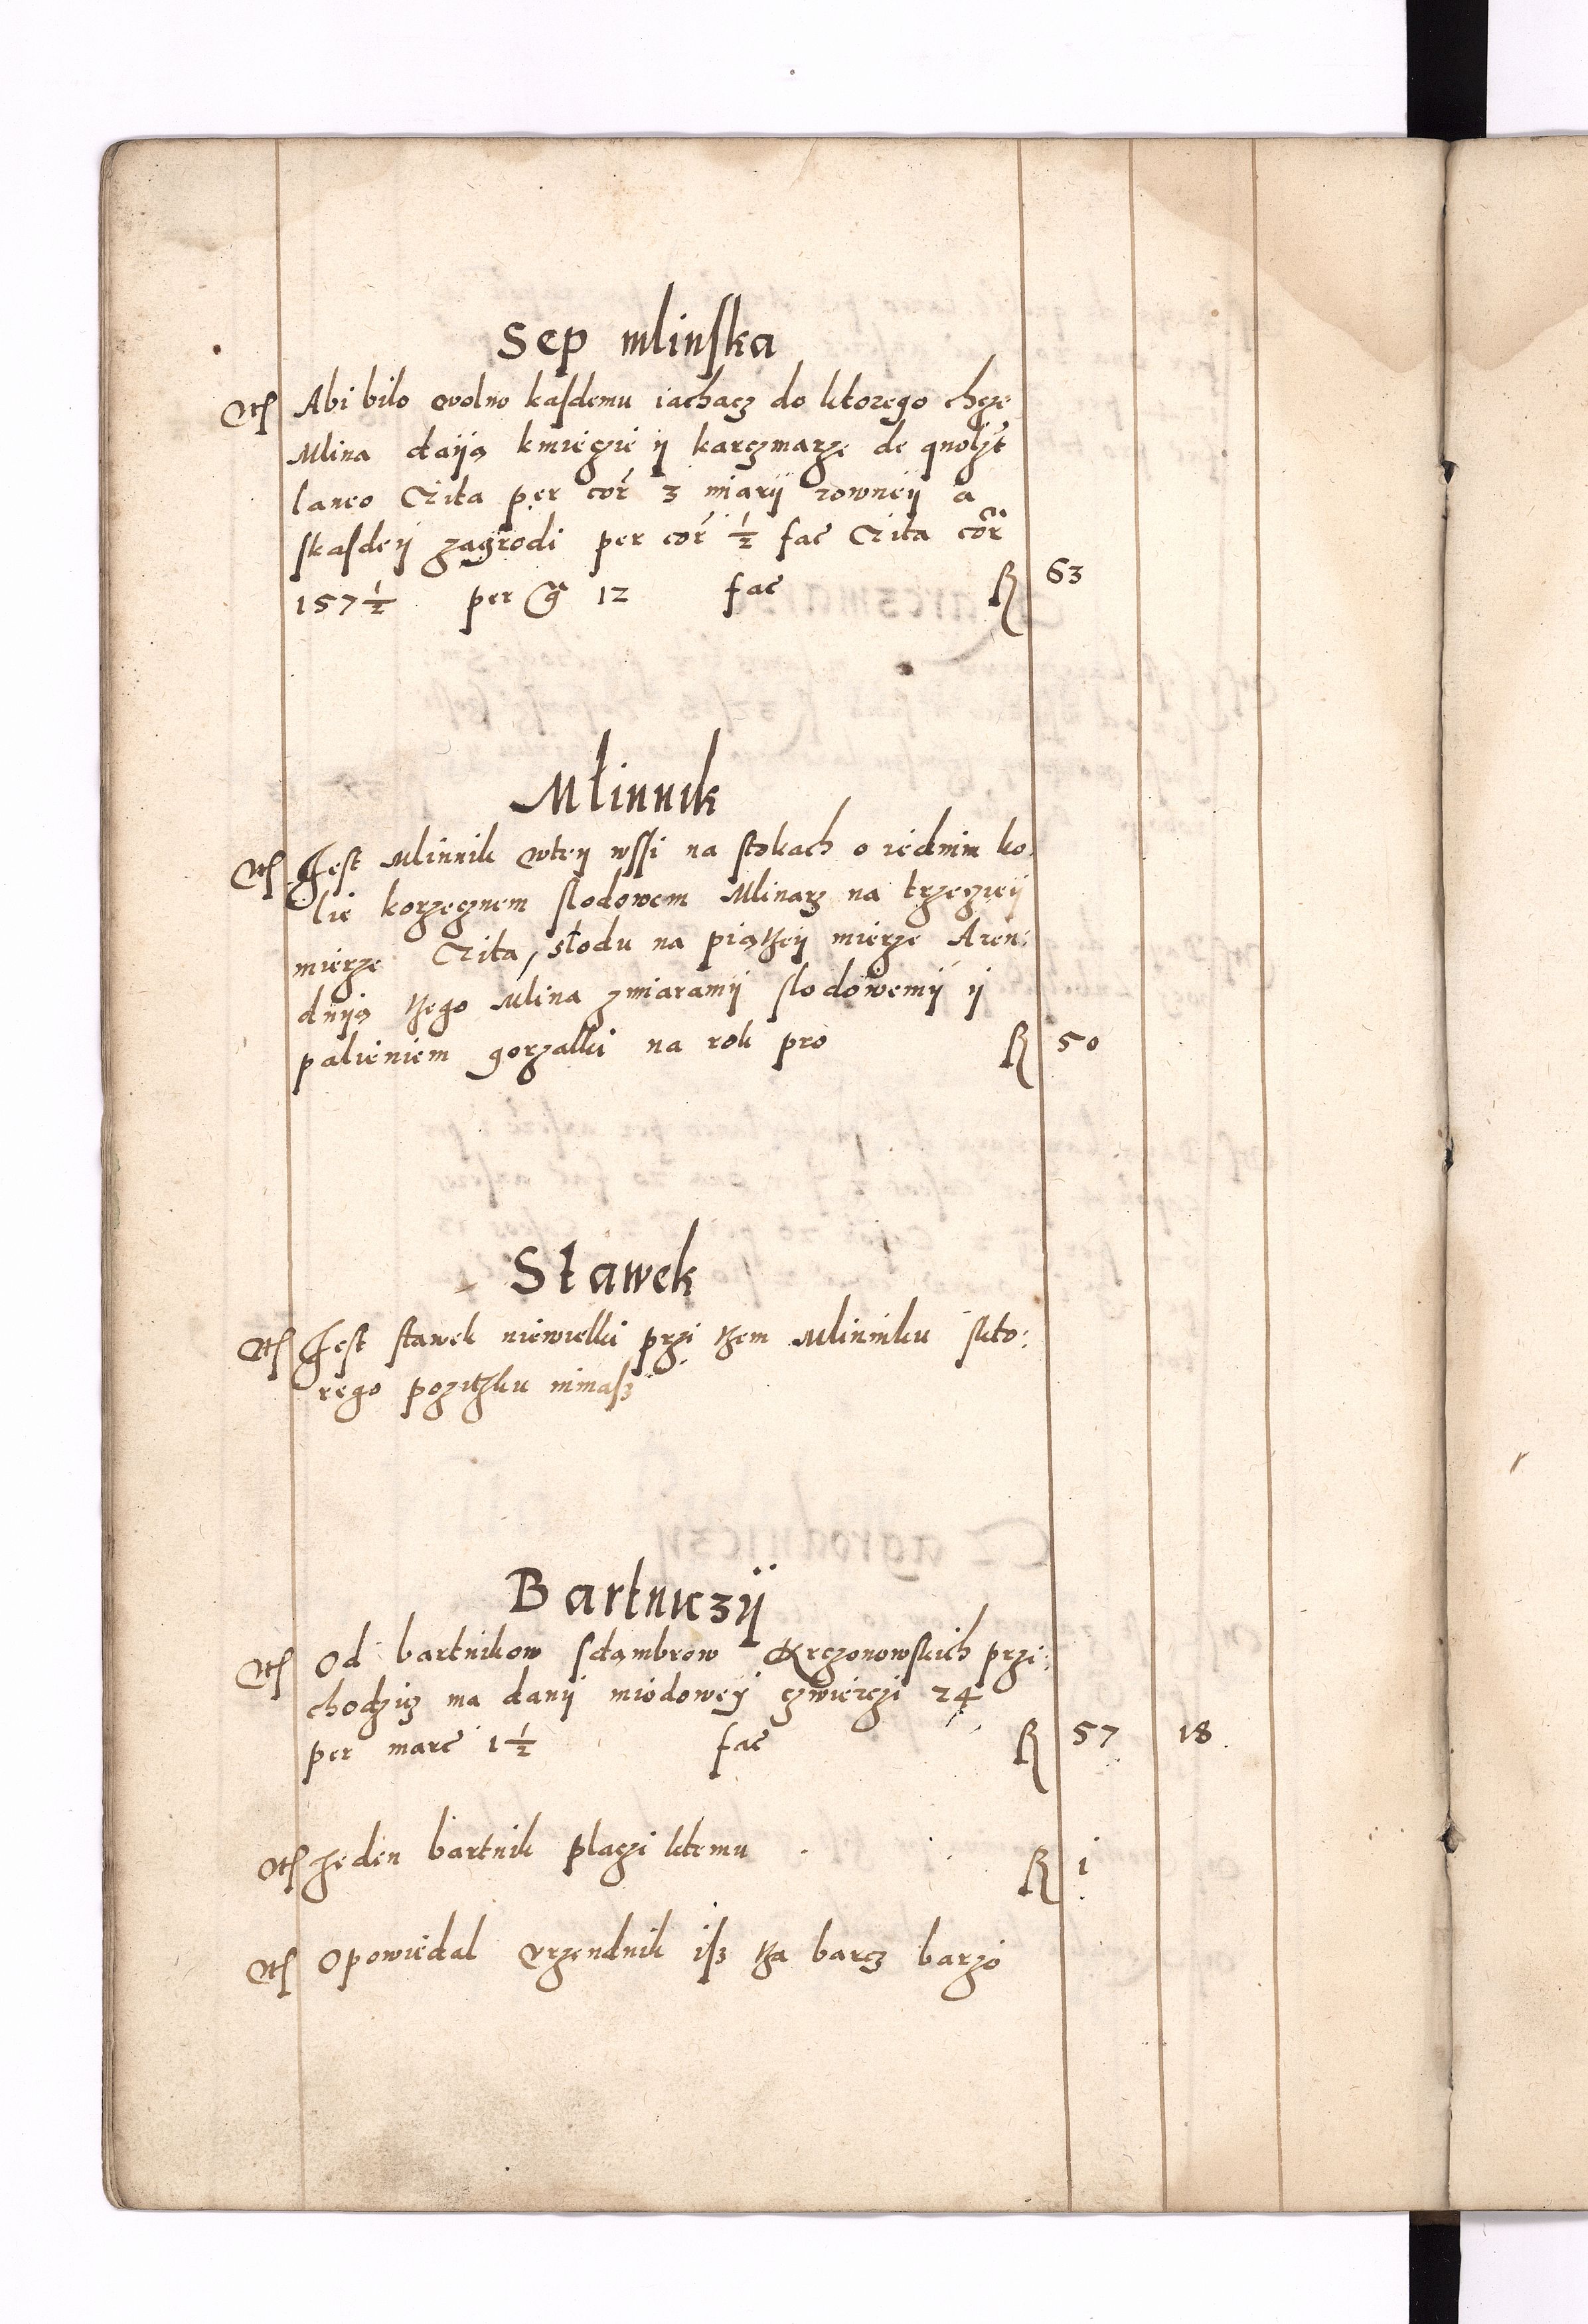 Sep mlinska
Its Abi bilo wolno kasdemu iachacz do ktorego chcze
Mlina daiją kmieczie ij karczmarze de quolzt
laneo Czita per cor̃ 3 miarij rownej a
skasdeij zagrodi per cor̃ ½ fac̃ Czita cor̃
157½ per g̃ 12 fac̃ R 63
Mlinnik
Its Jest Mlinnik wteij wssi na stokach o iednim ko:
lie korzecznem slodowem Mlinarz na trzecziej
mierze Czita, słodu na piątheij mierze Aren:
duiją thego Mlina zmiaramij slodowemij ij
palieniem gorzalki na rok pro R 50
Stawek
Its Jest stawek niewielki przi them Mlinniku skto:
rego pozithku nimasz
Bartniczij
Its Od bartnikow sdąmbrow Krczonowskich przi:
chodzicz ma danij miodoweij czwierczi 24
per marc̃ 1½ fac̃ R 57 18
Its Jeden bartnik placzi ktemu R i
Its Opowiedal Vrzendnik isz tha barcz barzo